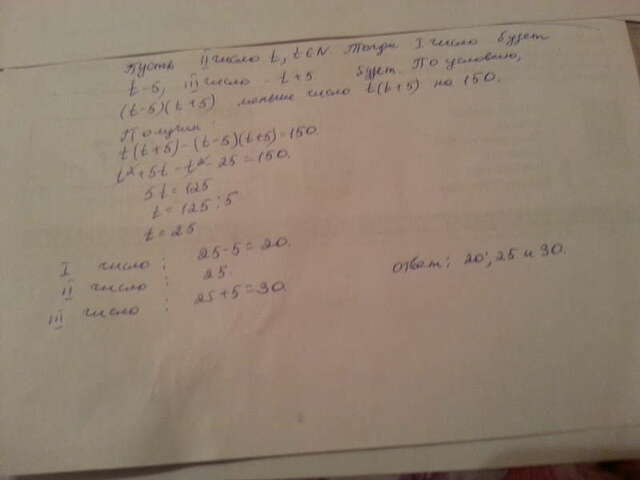 Пусть II число t, t∈N. Тогда I число будет
t-5, III число - t+5 будет. По условию,
(t-5)(t+5) меньше число t(t+5) на 150.
Получим:
t(t+5)-(t-5)(t+5)=150.
t²+5t-t²-25=150.
5t=125
t=125:5
t=25
I число: 25-5=20.
II число: 25
III число: 25+5=30.
ответ: 20; 25 и 30.